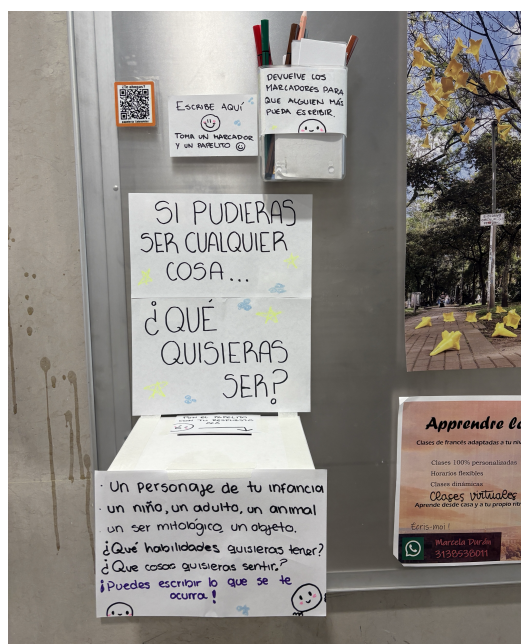 ESCRIBE AQUÍ
TOMA UN MARCADOR
Y UN PAPELITO
DEVUELVE LOS
MARCADORES PARA
QUE ALGUIEN MÁS
PUEDA ESCRIBIR.
SI PUDIERAS
SER CUALQUIER
COSA...
¿QUÉ
QUISIERAS
SER?
PON EL PAPELITO
CON TU RESPUESTA
· Un personaje de tu infancia
· un niño, un adulto, un animal
un ser mitológico, un objeto.
¿Qué habilidades quisieras tener?
¿Que cosas quisieras sentir?
¡Puedes escribir lo que se te
ocurra!
Apprendre
Clases de francés adaptadas a tu
Clases 100% personalizadas
Horarios flexibles
Clases dinámicas
Clases virtuales
Aprende desde casa y a tu propio
Écris-moi!
Marcela Durán
3138538011